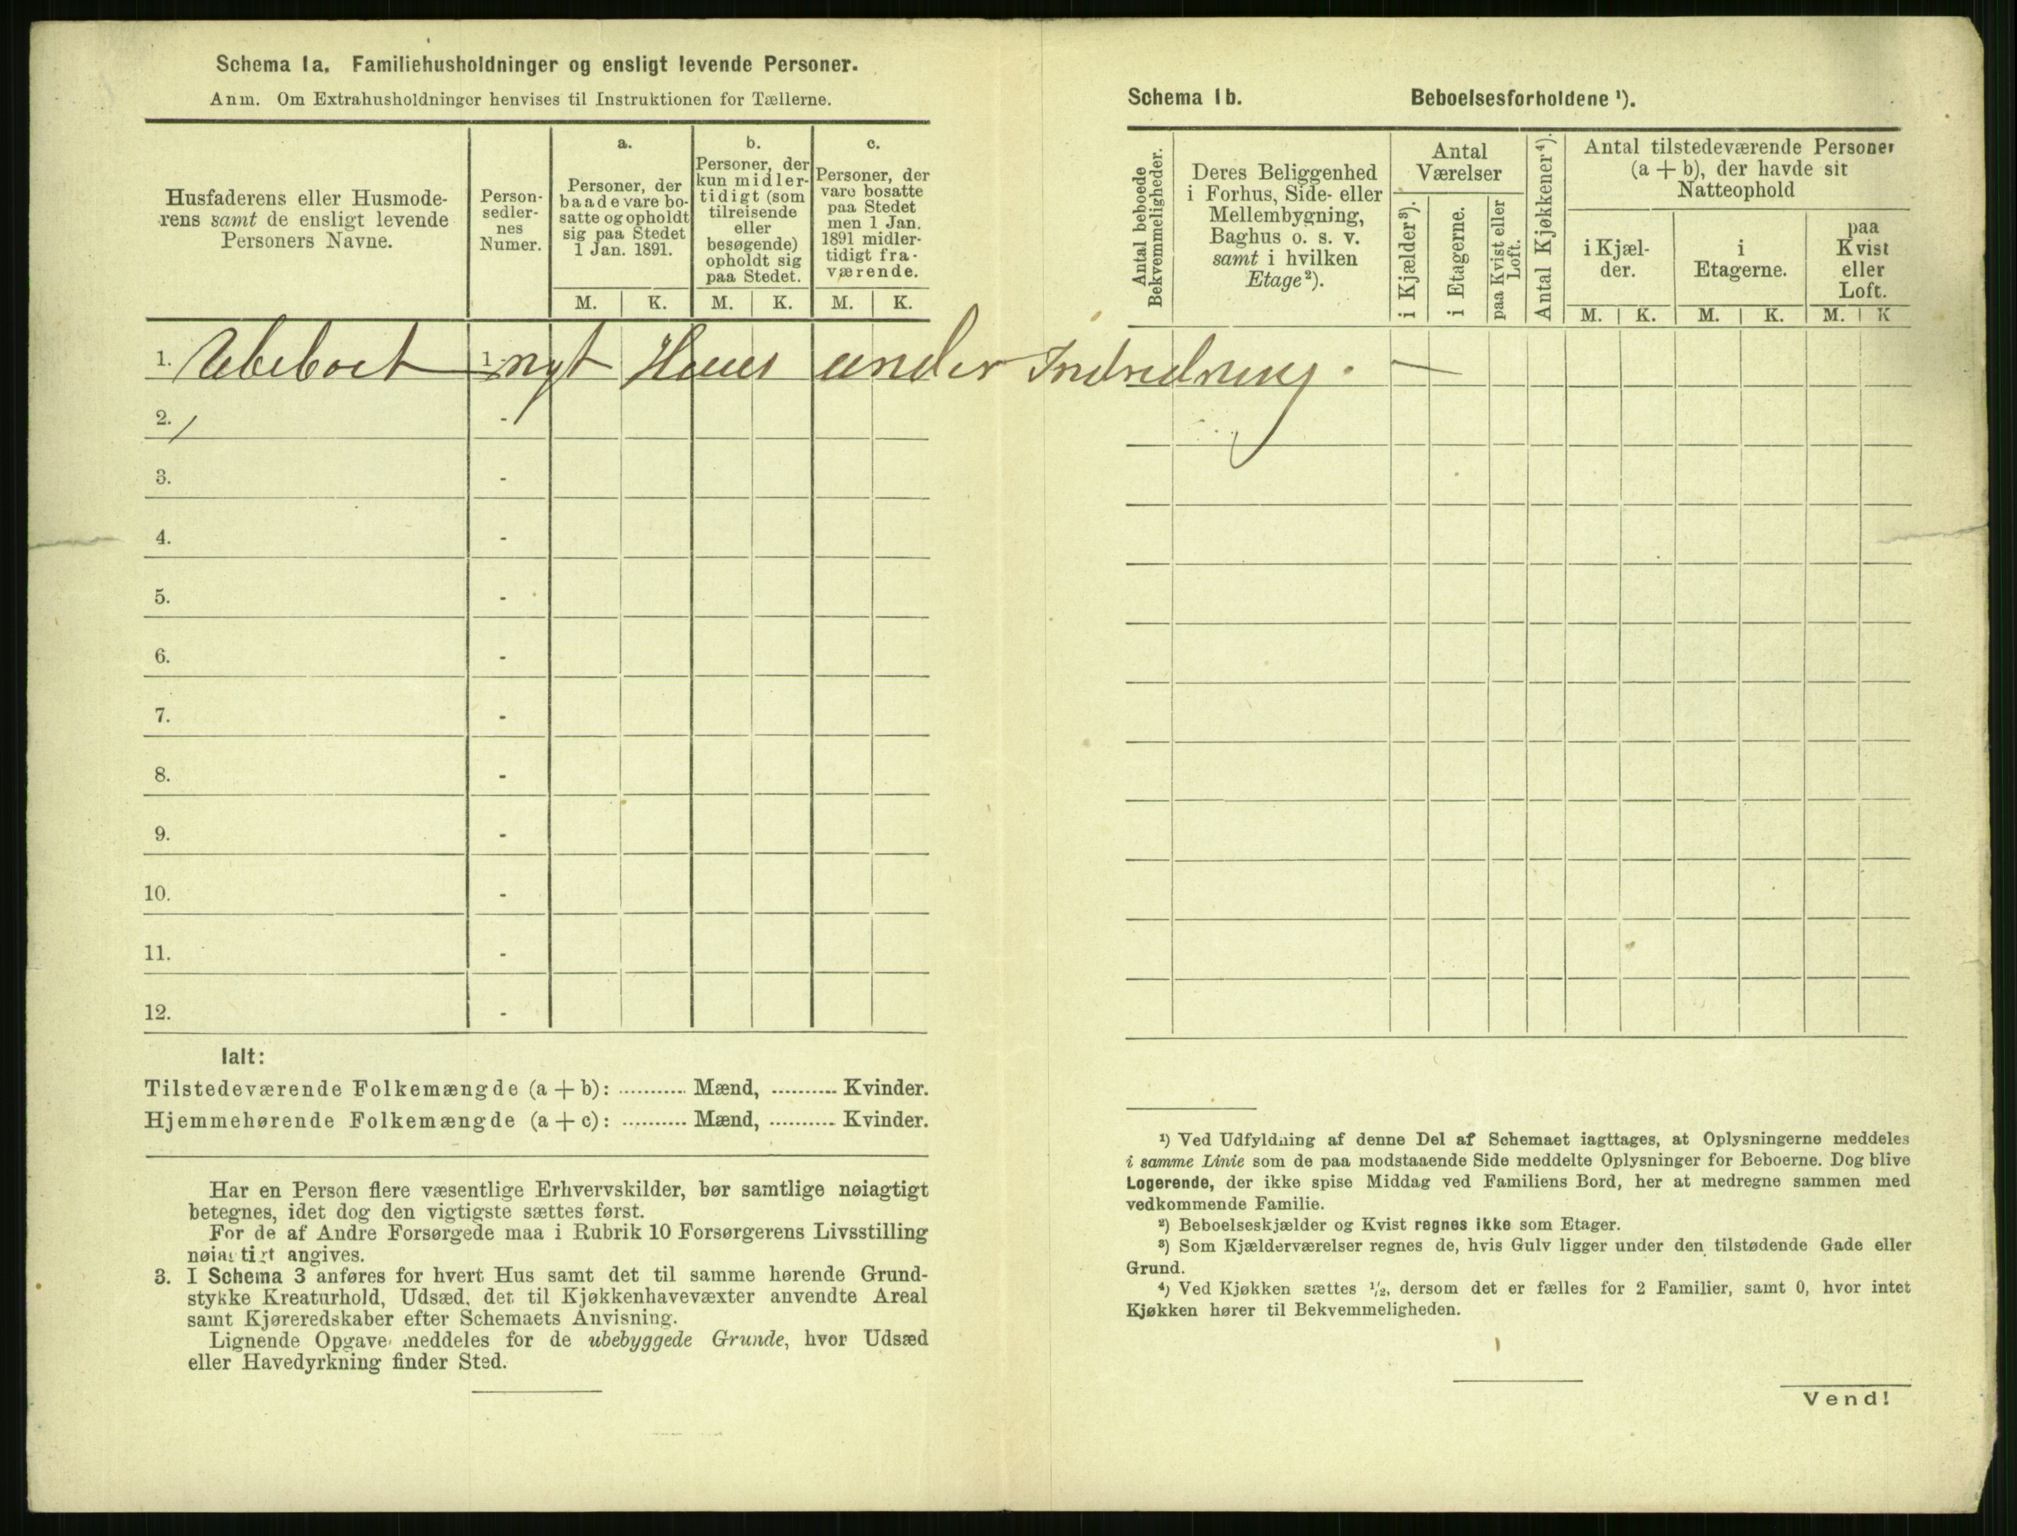 Schema 1a. Familiehusholdninger og ensligt levende Personer.
Anm. Om Extrahusholdninger henvises til Instruktionen for Tællerne.
Husfaderens eller Husmode-
rens samt de ensligt levende
Personers Navne.
Person-
sedler-
nes
Numer.
a.
Personer, der
baade vare bo-
satte og opholdt
sig paa Stedet
1 Jan. 1891.
b.
Personer, der
kun midler-
tidigt (som
tilreisende
eller
besøgende)
opholdt sig
paa Stedet.
c.
Personer, der
vare bosatte
paa Stedet
men 1 Jan.
1891 midler-
tidigt fra-
værende.
M. K. M. K. M. K.
1. Ubeboet 1 nyt Huus under Indredning. —
2. -
3. -
4. -
5. -
6. -
7. -
8. -
9. -
10. -
11. -
12. -
Ialt:
Tilstedeværende Folkemængde (a + b): .......... Mænd, .......... Kvinder.
Hjemmehørende Folkemængde (a + c): .......... Mænd, .......... Kvinder.
Har en Person flere væsentlige Erhvervskilder, bør samtlige nøiagtigt
betegnes, idet dog den vigtigste sættes først.
For de af Andre Forsørgede maa i Rubrik 10 Forsørgerens Livsstilling
nøiagtigt angives.
3. I Schema 3 anføres for hvert Hus samt det til samme hørende Grund-
stykke Kreaturhold, Udsæd, det til Kjøkkenhavevæxter anvendte Areal
samt Kjøreredskaber efter Schemaets Anvisning.
Lignende Opgave meddeles for de ubebyggede Grunde, hvor Udsæd
eller Havedyrkning finder Sted.
Schema 1b. Beboelsesforholdene ¹).
Antal beboede
Bekvemmeligheder.
Deres Beliggenhed
i Forhus, Side- eller
Mellembygning,
Baghus o. s. v.
samt i hvilken
Etage²).
Antal
Værelser
i Kjælder³).
i Etagerne.
paa Kvist eller
Loft.
Antal Kjøkkener⁴).
Antal tilstedeværende Personer
(a + b), der havde sit
Natteophold
i Kjæl-
der.
i
Etagerne.
paa
Kvist
eller
Loft.
M. K. M. K. M. K
¹) Ved Udfyldning af denne Del af Schemaet iagttages, at Oplysningerne meddeles
i samme Linie som de paa modstaaende Side meddelte Oplysninger for Beboerne. Dog blive
Logerende, der ikke spise Middag ved Familiens Bord, her at medregne sammen med
vedkommende Familie.
²) Beboelseskjælder og Kvist regnes ikke som Etager.
³) Som Kjælderværelser regnes de, hvis Gulv ligger under den tilstødende Gade eller
Grund.
⁴) Ved Kjøkken sættes ¹/₂, dersom det er fælles for 2 Familier, samt 0, hvor intet
Kjøkken hører til Bekvemmeligheden.
Vend!